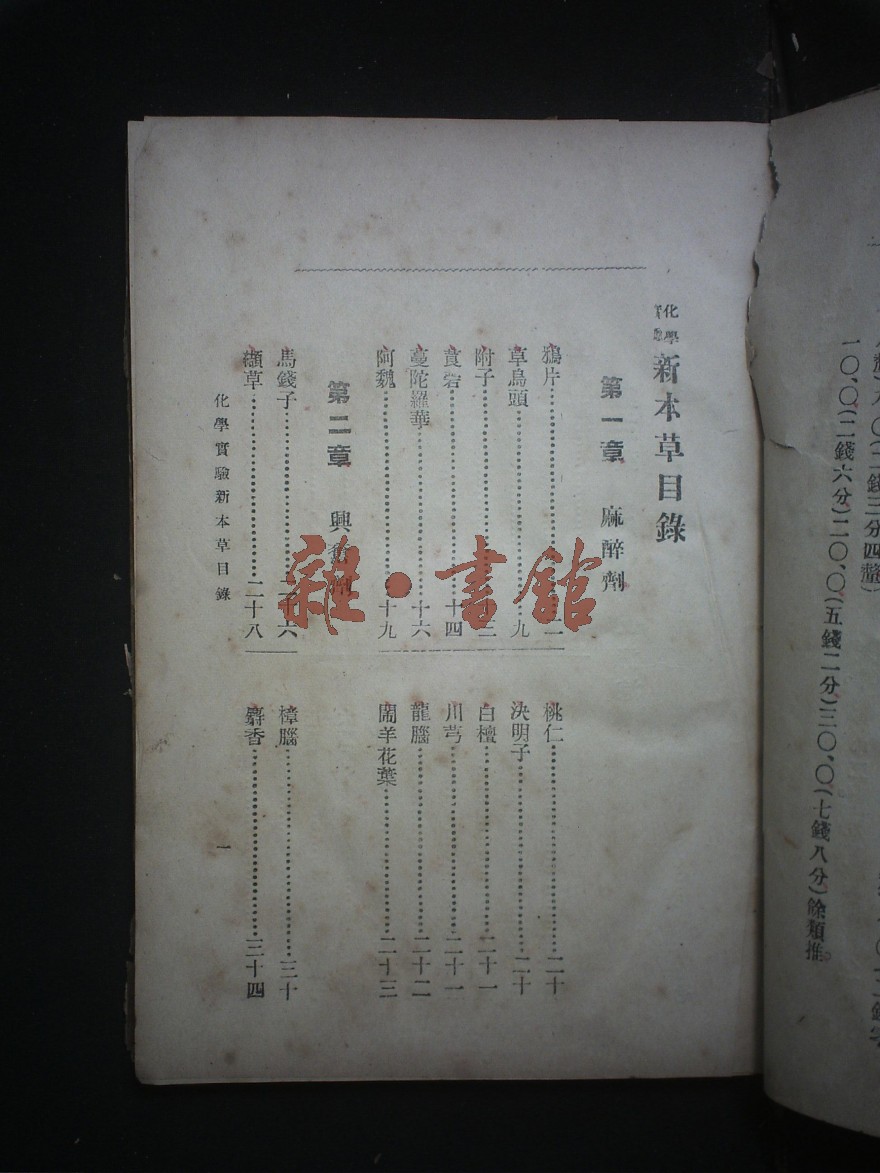 一〇、〇(二錢六分)二〇、〇(五錢二分)三〇、〇(七錢八分)餘類推
化學實驗新本草目錄
第一章 麻醉劑
鴉片
草烏頭……九
附子
莨菪……十四
蔓陀羅華……十六
阿魏……十九
桃仁……二十
決明子……二十
白檀……二十一
川芎……二十一
龍腦……二十二
鬧羊花葉……二十三
第二章 興奮劑
馬錢子……二十六
纈草……二十八
樟腦……三十
麝香……三十四
化學實驗新本草目錄
一
雜·書館